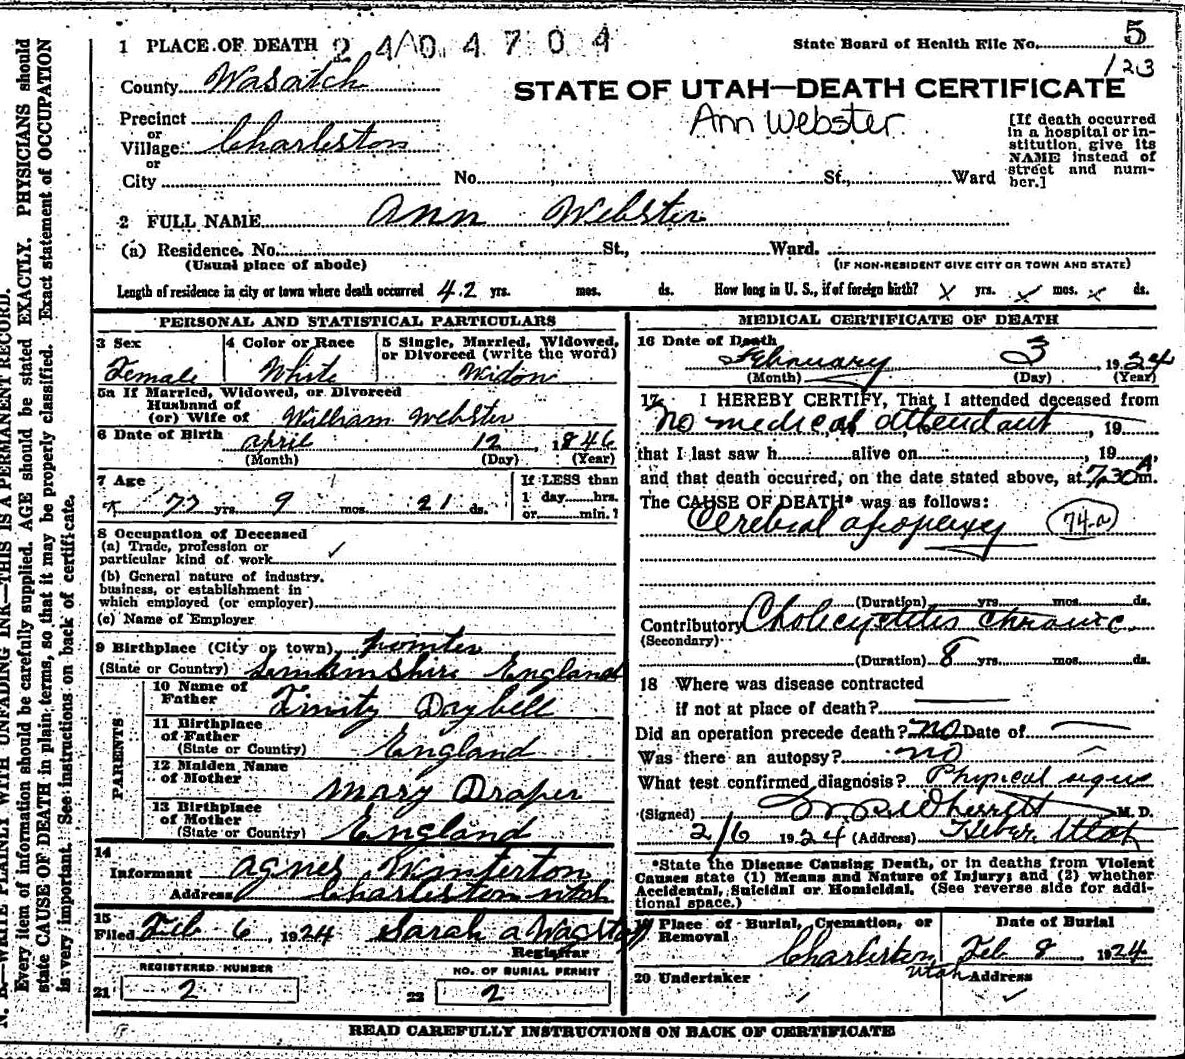 1 PLACE OF DEATH 24A04704
State Board of Health File No. 5
123
County Wasatch
STATE OF UTAH—DEATH CERTIFICATE
Ann Webster
Precinct
or
Village Charleston
or
City No. St., Ward
[If death occurred
in a hospital or in-
stitution, give its
NAME instead of
street and num-
ber.]
2 FULL NAME Ann Webster
(a) Residence. No. St., Ward.
(Usual place of abode) (IF NON-RESIDENT GIVE CITY OR TOWN AND STATE)
Length of residence in city or town where death occurred 42 yrs. mos. ds. How long in U. S., if of foreign birth? x yrs. x mos. x ds.
PERSONAL AND STATISTICAL PARTICULARS
3 Sex Female
4 Color or Race White
5 Single, Married, Widowed,
or Divorced (write the word)
Widow
5a If Married, Widowed, or Divorced
Husband of
(or) Wife of William Webster
6 Date of Birth April 12, 1846
(Month) (Day) (Year)
7 Age 77 yrs. 9 mos. 21 ds.
If LESS than
1 day hrs.
or min.?
8 Occupation of Deceased
(a) Trade, profession or
particular kind of work
(b) General nature of industry,
business, or establishment in
which employed (or employer)
(c) Name of Employer
9 Birthplace (City or town)
(State or Country) England
PARENTS
10 Name of
Father Finity Daybell
11 Birthplace
of Father
(State or Country) England
12 Maiden Name
of Mother Mary Draper
13 Birthplace
of Mother
(State or Country) England
14
Informant Agnes Winterton
Address Charleston Utah
15
Filed Feb 6, 1924 Sarah A Wagstaff
Registrar
REGISTERED NUMBER
21 2
NO. OF BURIAL PERMIT
22 2
MEDICAL CERTIFICATE OF DEATH
16 Date of Death
February 3 1924
(Month) (Day) (Year)
17. I HEREBY CERTIFY, That I attended deceased from
No medical attendant, 19
that I last saw h alive on, 19
and that death occurred, on the date stated above, at 7.30 A m.
The CAUSE OF DEATH* was as follows:
Cerebral apoplexy 74-a
(Duration) yrs. mos. ds.
Contributory Cholecyctitis chronic
(Secondary)
(Duration) 8 yrs. mos. ds.
18 Where was disease contracted
if not at place of death?
Did an operation precede death? No Date of
Was there an autopsy? no
What test confirmed diagnosis? Physical signs
(Signed) Wherritt M. D.
2/6 1924 (Address) Heber, Utah
*State the Disease Causing Death, or in deaths from Violent
Causes state (1) Means and Nature of Injury; and (2) whether
Accidental, Suicidal or Homicidal. (See reverse side for addi-
tional space.)
19 Place of Burial, Cremation, or
Removal Charleston, Utah
Date of Burial
Feb 8, 1924
20 Undertaker Address
READ CAREFULLY INSTRUCTIONS ON BACK OF CERTIFICATE
N. B.—WRITE PLAINLY WITH UNFADING INK—THIS IS A PERMANENT RECORD.
Every item of information should be carefully supplied. AGE should be stated EXACTLY. PHYSICIANS should
state CAUSE OF DEATH in plain terms, so that it may be properly classified. Exact statement of OCCUPATION
is very important. See instructions on back of certificate.